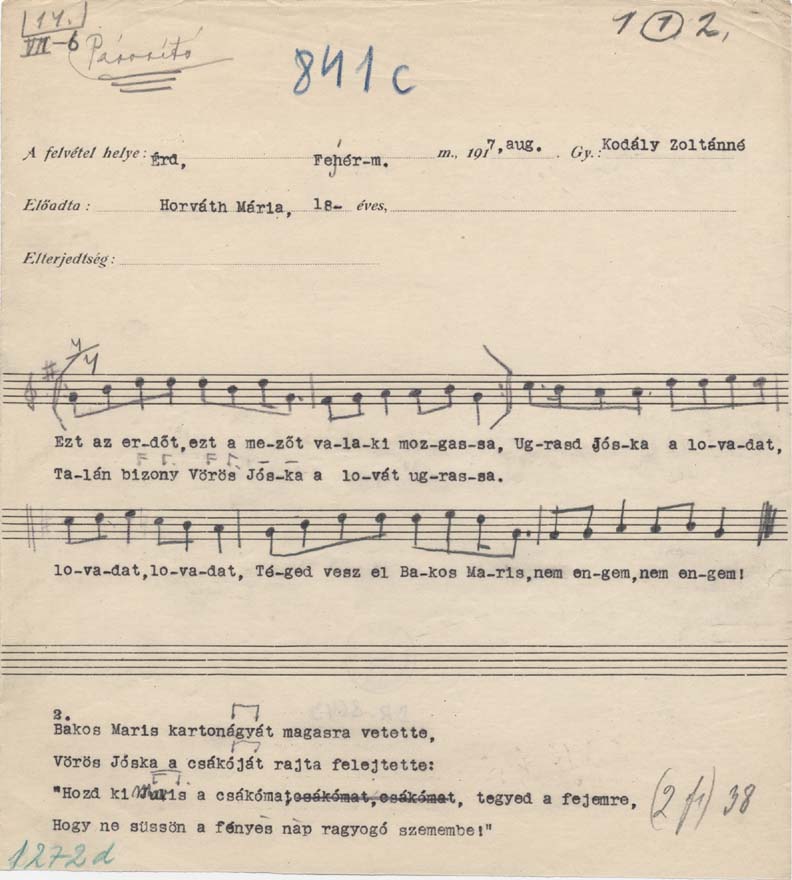 14.
VII-6
Párosító
1 1 2,
841 c
A felvétel helye: Érd, Fehér-m. m., 1917, aug. Gy.: Kodály Zoltánné
Előadta: Horváth Mária, 18- éves,
Elterjedtség:
4/4
Ezt az er-dőt,ezt a me-zőt va-la-ki moz-gas-sa, Ug-rasd Jós-ka a lo-va-dat,
Ta-lán bizony Vörös Jós-ka a lo-vát ug-ras-sa.
lo-va-dat,lo-va-dat, Té-ged vesz el Ba-kos Ma-ris,nem en-gem,nem en-gem!
2.
Bakos Maris kartonágyát magasra vetette,
Vörös Jóska a csákóját rajta felejtette:
"Hozd ki Maris a csákómat,csákómat,csákómat, tegyed a fejemre,
Hogy ne süssön a fényes nap ragyogó szemembe!"
(2 f1) 38
1272d